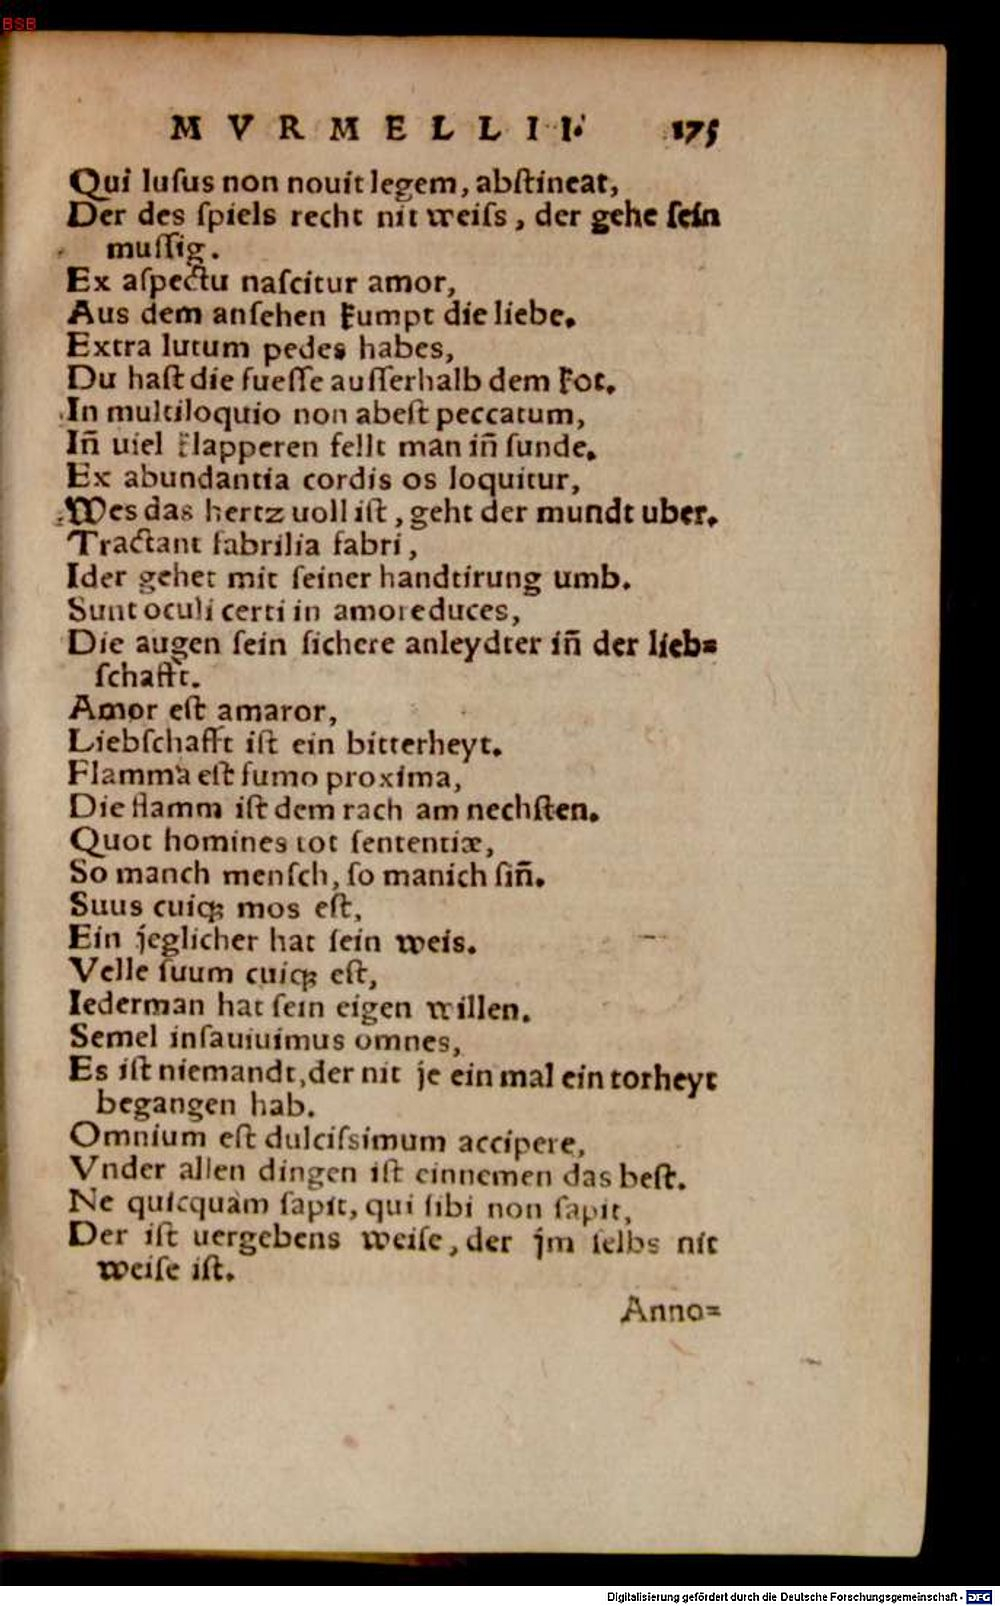 BSB
MVRMELLII. 175
Qui luſus non nouit legem, abſtineat,
Der des ſpiels recht nit weiſs, der gehe ſein
muſſig.
Ex aſpectu naſcitur amor,
Aus dem anſehen kumpt die liebe.
Extra lutum pedes habes,
Du haſt die fueſſe auſſerhalb dem kot.
In multiloquio non abeſt peccatum,
In̄ uiel klapperen fellt man in̄ ſunde.
Ex abundantia cordis os loquitur,
Wes das hertz uoll iſt, geht der mundt uber.
Tractant fabrilia fabri,
Ider gehet mit ſeiner handtirung umb.
Sunt oculi certi in amore duces,
Die augen ſein ſichere anleydter in̄ der lieb=
ſchafft.
Amor eſt amaror,
Liebſchafft iſt ein bitterheyt.
Flamma eſt fumo proxima,
Die flamm iſt dem rach am nechſten.
Quot homines tot ſententiæ,
So manch menſch, ſo manich ſin̄.
Suus cuiqꝫ mos eſt,
Ein jeglicher hat ſein weis.
Velle ſuum cuiqꝫ eſt,
Iederman hat ſein eigen willen.
Semel inſauiuimus omnes,
Es iſt niemandt, der nit je ein mal ein torheyt
begangen hab.
Omnium eſt dulciſsimum accipere,
Vnder allen dingen iſt einnemen das beſt.
Ne quicquàm ſapit, qui ſibi non ſapit,
Der iſt uergebens weiſe, der jm ſelbs nit
weiſe iſt.
Anno=
Digitalisierung gefördert durch die Deutsche Forschungsgemeinschaft - DFG